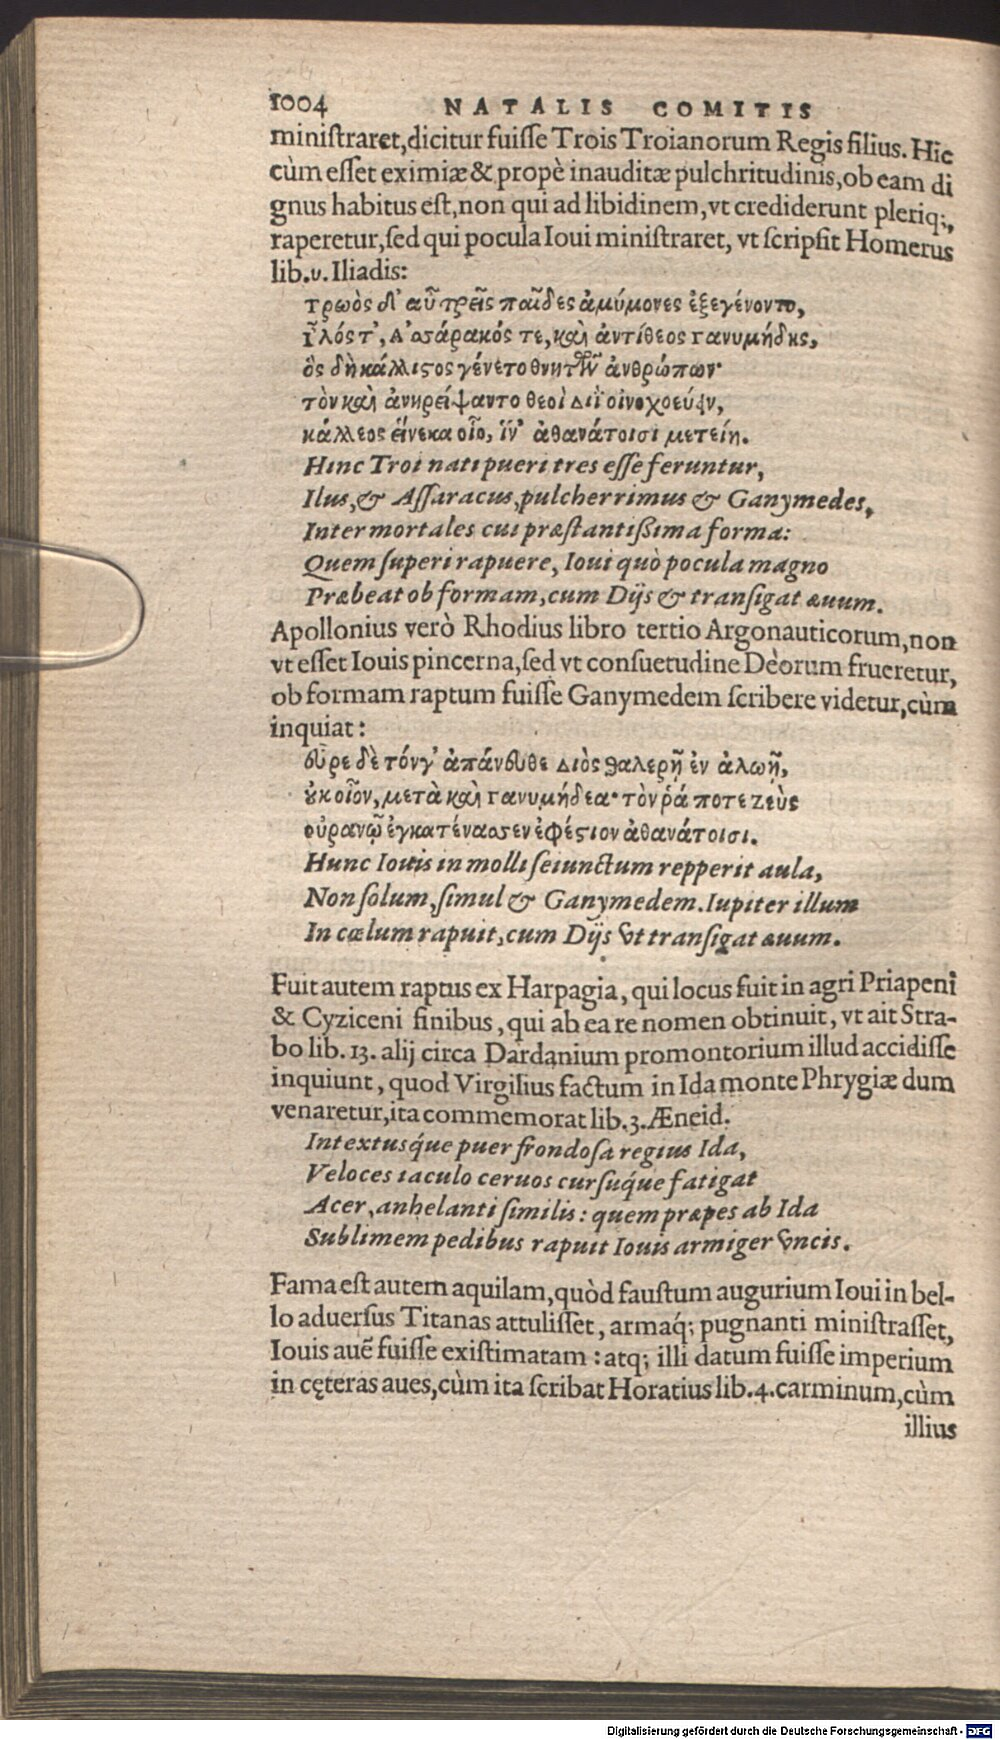 1004 NATALIS COMITIS
ministraret, dicitur fuisse Trois Troianorum Regis filius. Hic
cùm esset eximiæ & propè inauditæ pulchritudinis, ob eam di
gnus habitus est, non qui ad libidinem, vt crediderunt pleriq;,
raperetur, sed qui pocula Ioui ministraret, vt scripsit Homerus
lib. υ. Iliadis:
τρωὸς δ' αὖ τρεῖς παῖδες ἀμύμονες ἐξεγένοντο,
ἶλός τ', ἀσάρακός τε, καὶ ἀντίθεος γανυμήδης,
ὃς δὴ κάλλιστος γένετο θνητῶν ἀνθρώπων·
τὸν καὶ ἀνηρείψαντο θεοὶ διῒ οἰνοχοεύειν,
κάλλεος εἵνεκα οἷο, ἵν' ἀθανάτοισι μετείη.
Hinc Troi nati pueri tres esse feruntur,
Ilus, & Assaracus, pulcherrimus & Ganymedes,
Inter mortales cui præstantissima forma:
Quem superi rapuere, Ioui quò pocula magno
Præbeat ob formam, cum Dijs & transigat æuum.
Apollonius verò Rhodius libro tertio Argonauticorum, non
vt esset Iouis pincerna, sed vt consuetudine Deorum frueretur,
ob formam raptum fuisse Ganymedem scribere videtur, cùm
inquiat:
εὗρε δὲ τόνγ' ἀπάνευθε διὸς θαλερῇ ἐν ἀλωῇ,
οὐκ οἶον, μετὰ καὶ γανυμήδεα· τὸν ῥά ποτε ζεὺς
οὐρανῷ ἐγκατένασσεν ἐφέστιον ἀθανάτοισι.
Hunc Iouis in molli seiunctum repperit aula,
Non solum, simul & Ganymedem. Iupiter illum
In cœlum rapuit, cum Dijs vt transigat æuum.
Fuit autem raptus ex Harpagia, qui locus fuit in agri Priapeni
& Cyziceni finibus, qui ab ea re nomen obtinuit, vt ait Stra-
bo lib. 13. alij circa Dardanium promontorium illud accidisse
inquiunt, quod Virgilius factum in Ida monte Phrygiæ dum
venaretur, ita commemorat lib. 3. Æneid.
Intextusq́ue puer frondosa regius Ida,
Veloces iaculo ceruos cursuq́ue fatigat
Acer, anhelanti similis: quem præpes ab Ida
Sublimem pedibus rapuit Iouis armiger vncis.
Fama est autem aquilam, quòd faustum augurium Ioui in bel-
lo aduersus Titanas attulisset, armaq́; pugnanti ministrasset,
Iouis auē fuisse existimatam: atq; illi datum fuisse imperium
in cęteras aues, cùm ita scribat Horatius lib. 4. carminum, cùm
illius
Digitalisierung gefördert durch die Deutsche Forschungsgemeinschaft - DFG